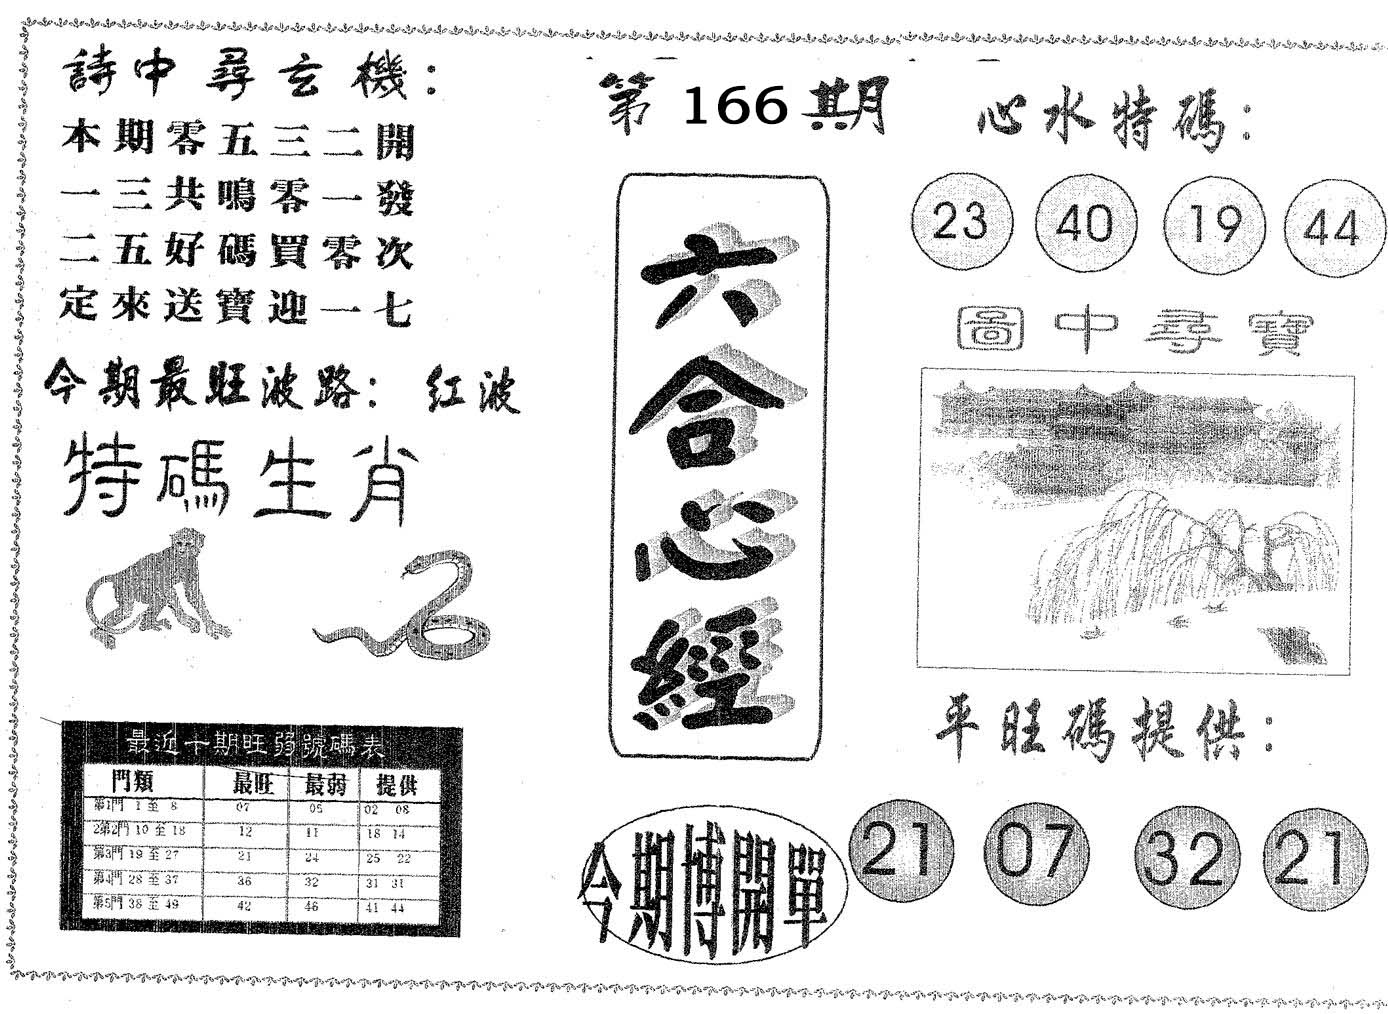 詩中尋玄機：
本期零五三二開
一三共鳴零一發
二五好碼買零次
定來送寶迎一七
今期最旺波路：红波
特碼生肖
最近十期旺弱號碼表
門類 最旺 最弱 提供
第1門 1 至 8 07 05 02 08
2第2門 10 至 18 12 11 18 14
第3門 19 至 27 21 24 25 22
第4門 28 至 37 36 32 31 31
第5門 38 至 49 42 46 41 44
第 166 期
六合心經
今期博開單
心水特碼：
23 40 19 44
圖中尋寶
平旺碼提供：
21 07 32 21